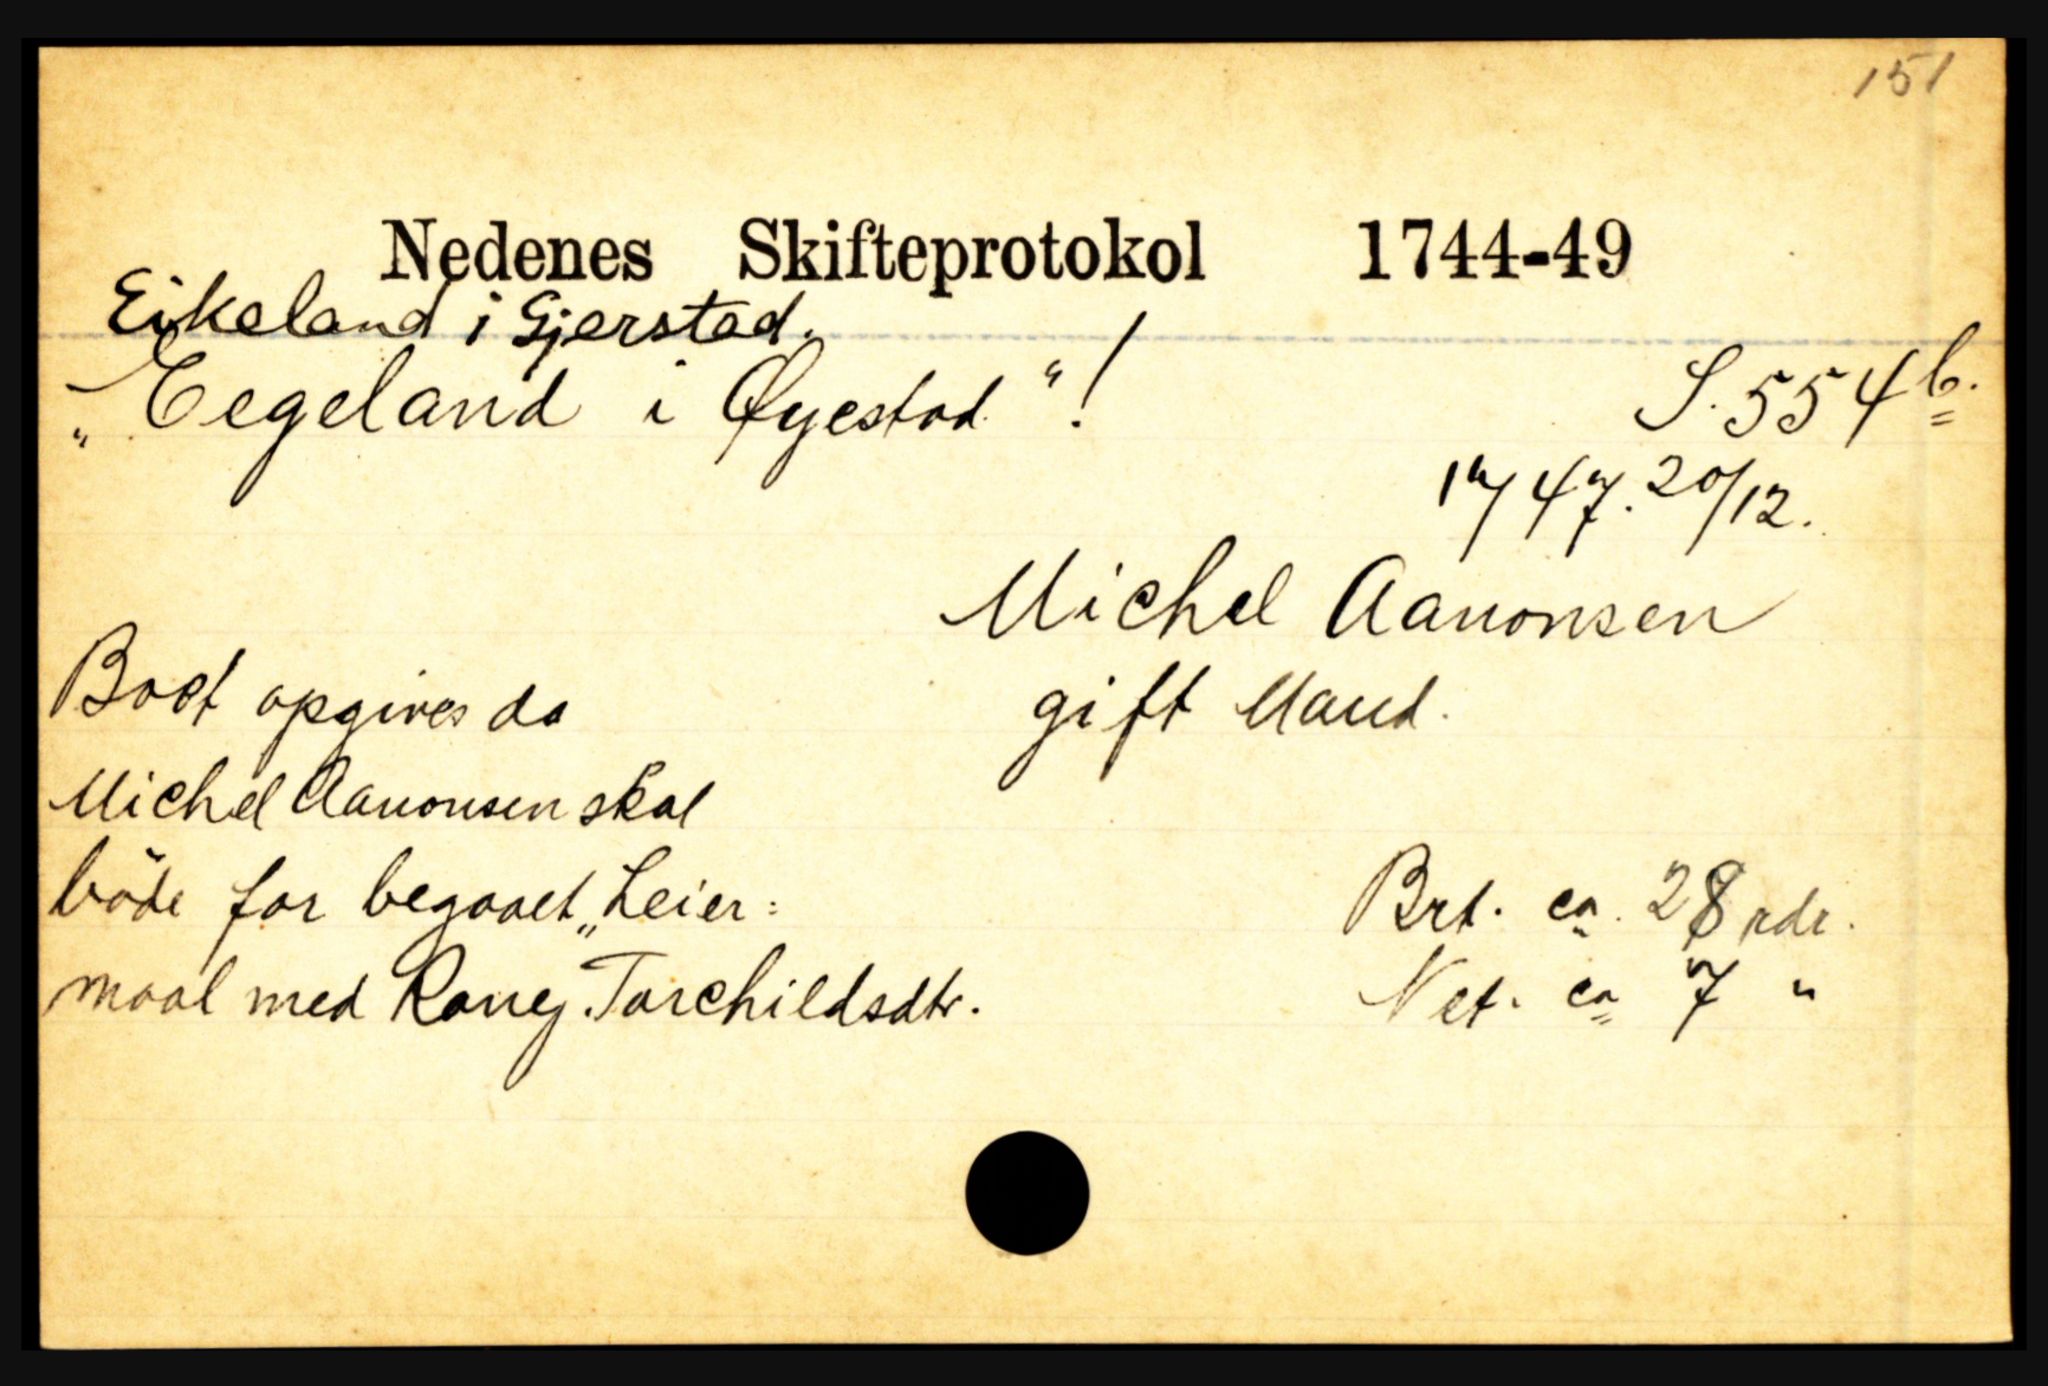 151
Nedenes Skifteprotokol 1744-49
Eikeland i Gjerstad.
„Eegeland i Øyestad"!
S. 554b.
1747. 20/12.
Michel Aanonsen
gift Mand.
Boet opgives da
Michel Aanonsen skal
böde for begaaet „Leier=
maal med Roney Torchildsdtr.
Brt. ca. 28 rdr.
Net. ca 7 "